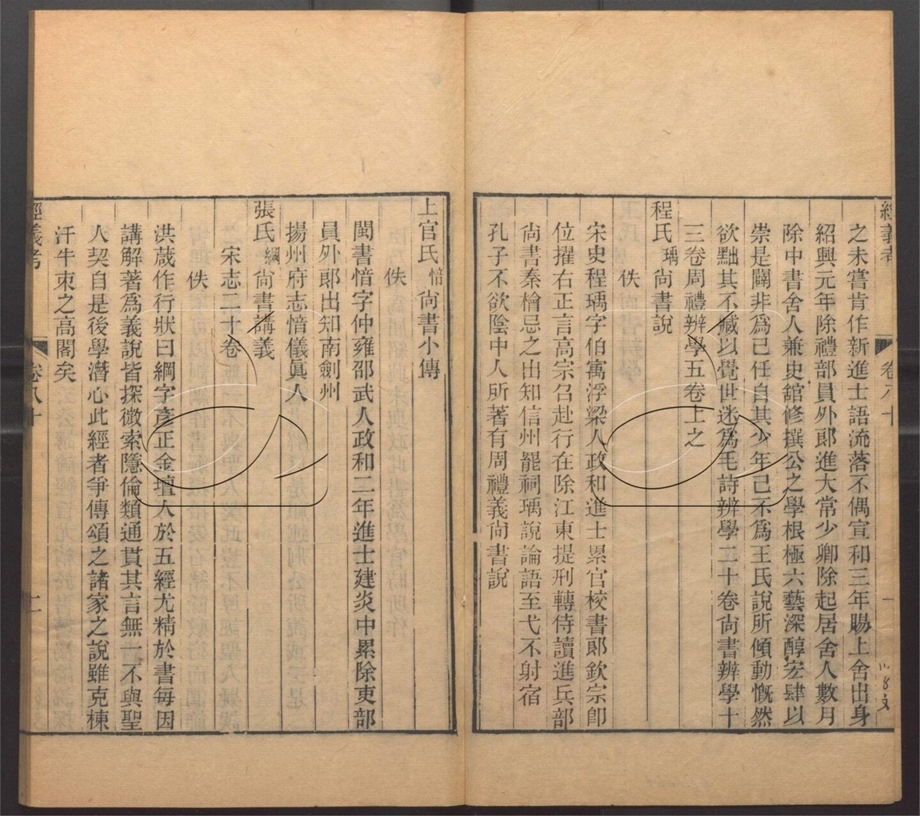 經義考
卷八十
一
之未嘗肯作新進士語流落不偶宣和三年賜上舍出身
紹興元年除禮部員外郎進大常少卿除起居舍人數月
除中書舍人兼史館修撰公之學根極六藝深醇宏肆以
崇是闢非爲己任自其少年已不爲王氏說所傾動慨然
欲黜其不臧以覺世迷爲毛詩辨學二十卷尙書辨學十
三卷周禮辨學五卷上之
程氏瑀尙書說
佚
宋史程瑀字伯寓浮梁人政和進士累官校書郞欽宗卽
位擢右正言高宗召赴行在除江東提刑轉侍讀進兵部
尙書秦檜忌之出知信州罷祠瑀說論語至弋不射宿
孔子不欲陰中人所著有周禮義尙書說
上官氏愔尙書小傳
佚
閩書愔字仲雍邵武人政和二年進士建炎中累除吏部
員外郞出知南劍州
揚州府志愔儀眞人
張氏綱尙書講義
宋志三十卷
佚
洪葴作行狀曰綱字彥正金壇人於五經尤精於書每因
講解著爲義說皆探微索隱倫類通貫其言無一不與聖
人契自是後學潛心此經者爭傳頌之諸家之說雖克棟
汗牛束之高閣矣
經義考
卷八十
二